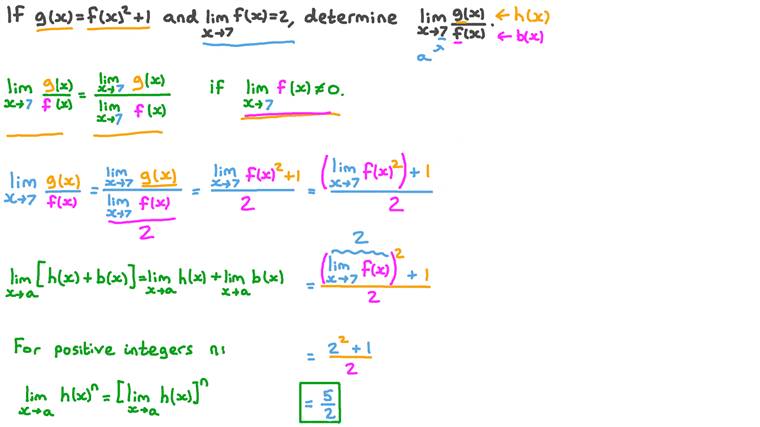 If g(x) = f(x)² + 1 and lim x→7 f(x) = 2, determine lim x→7 g(x)/f(x). ← h(x) ← b(x)
a
lim x→7 g(x)/f(x) = lim x→7 g(x) / lim x→7 f(x) if lim x→7 f(x) ≠ 0.
lim x→7 g(x)/f(x) = lim x→7 g(x) / lim x→7 f(x) = lim x→7 f(x)² + 1 / 2 = (lim x→7 f(x)²) + 1 / 2
2
2
lim x→a [h(x) + b(x)] = lim x→a h(x) + lim x→a b(x) = (lim x→7 f(x))² + 1 / 2
For positive integers n: = 2² + 1 / 2
lim x→a h(x)ⁿ = [lim x→a h(x)]ⁿ = 5/2